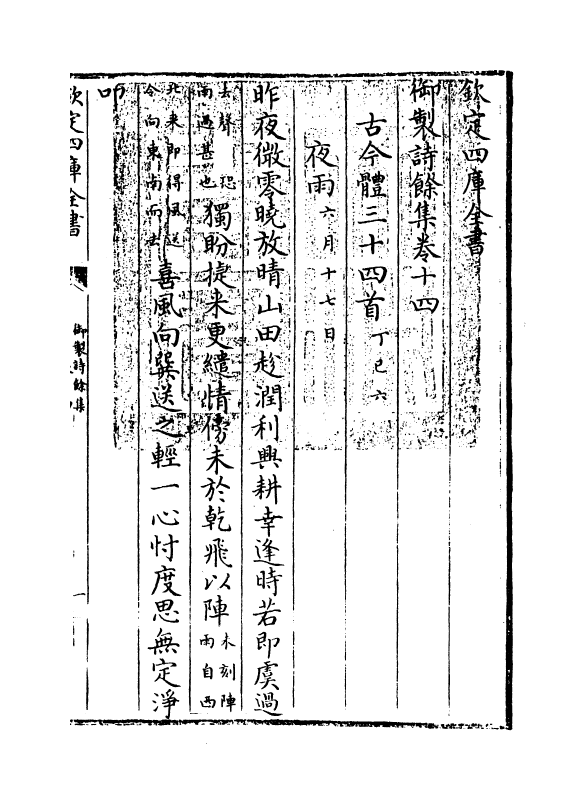 欽定四庫全書
御製詩餘集卷十四
古今體三十四首 丁巳六
夜雨 六月十七日
昨夜微零曉放晴山田趂潤利興耕幸逢時若即虞過
去聲恐
雨過甚也
獨盼捷来更繾情傍未於乾飛以陣
未刻陣
雨自西
北来即得風送
今向東南而去
喜風向巽送之輕一心忖度思無定淨
叩
欽定四庫全書
御製詩餘集
一